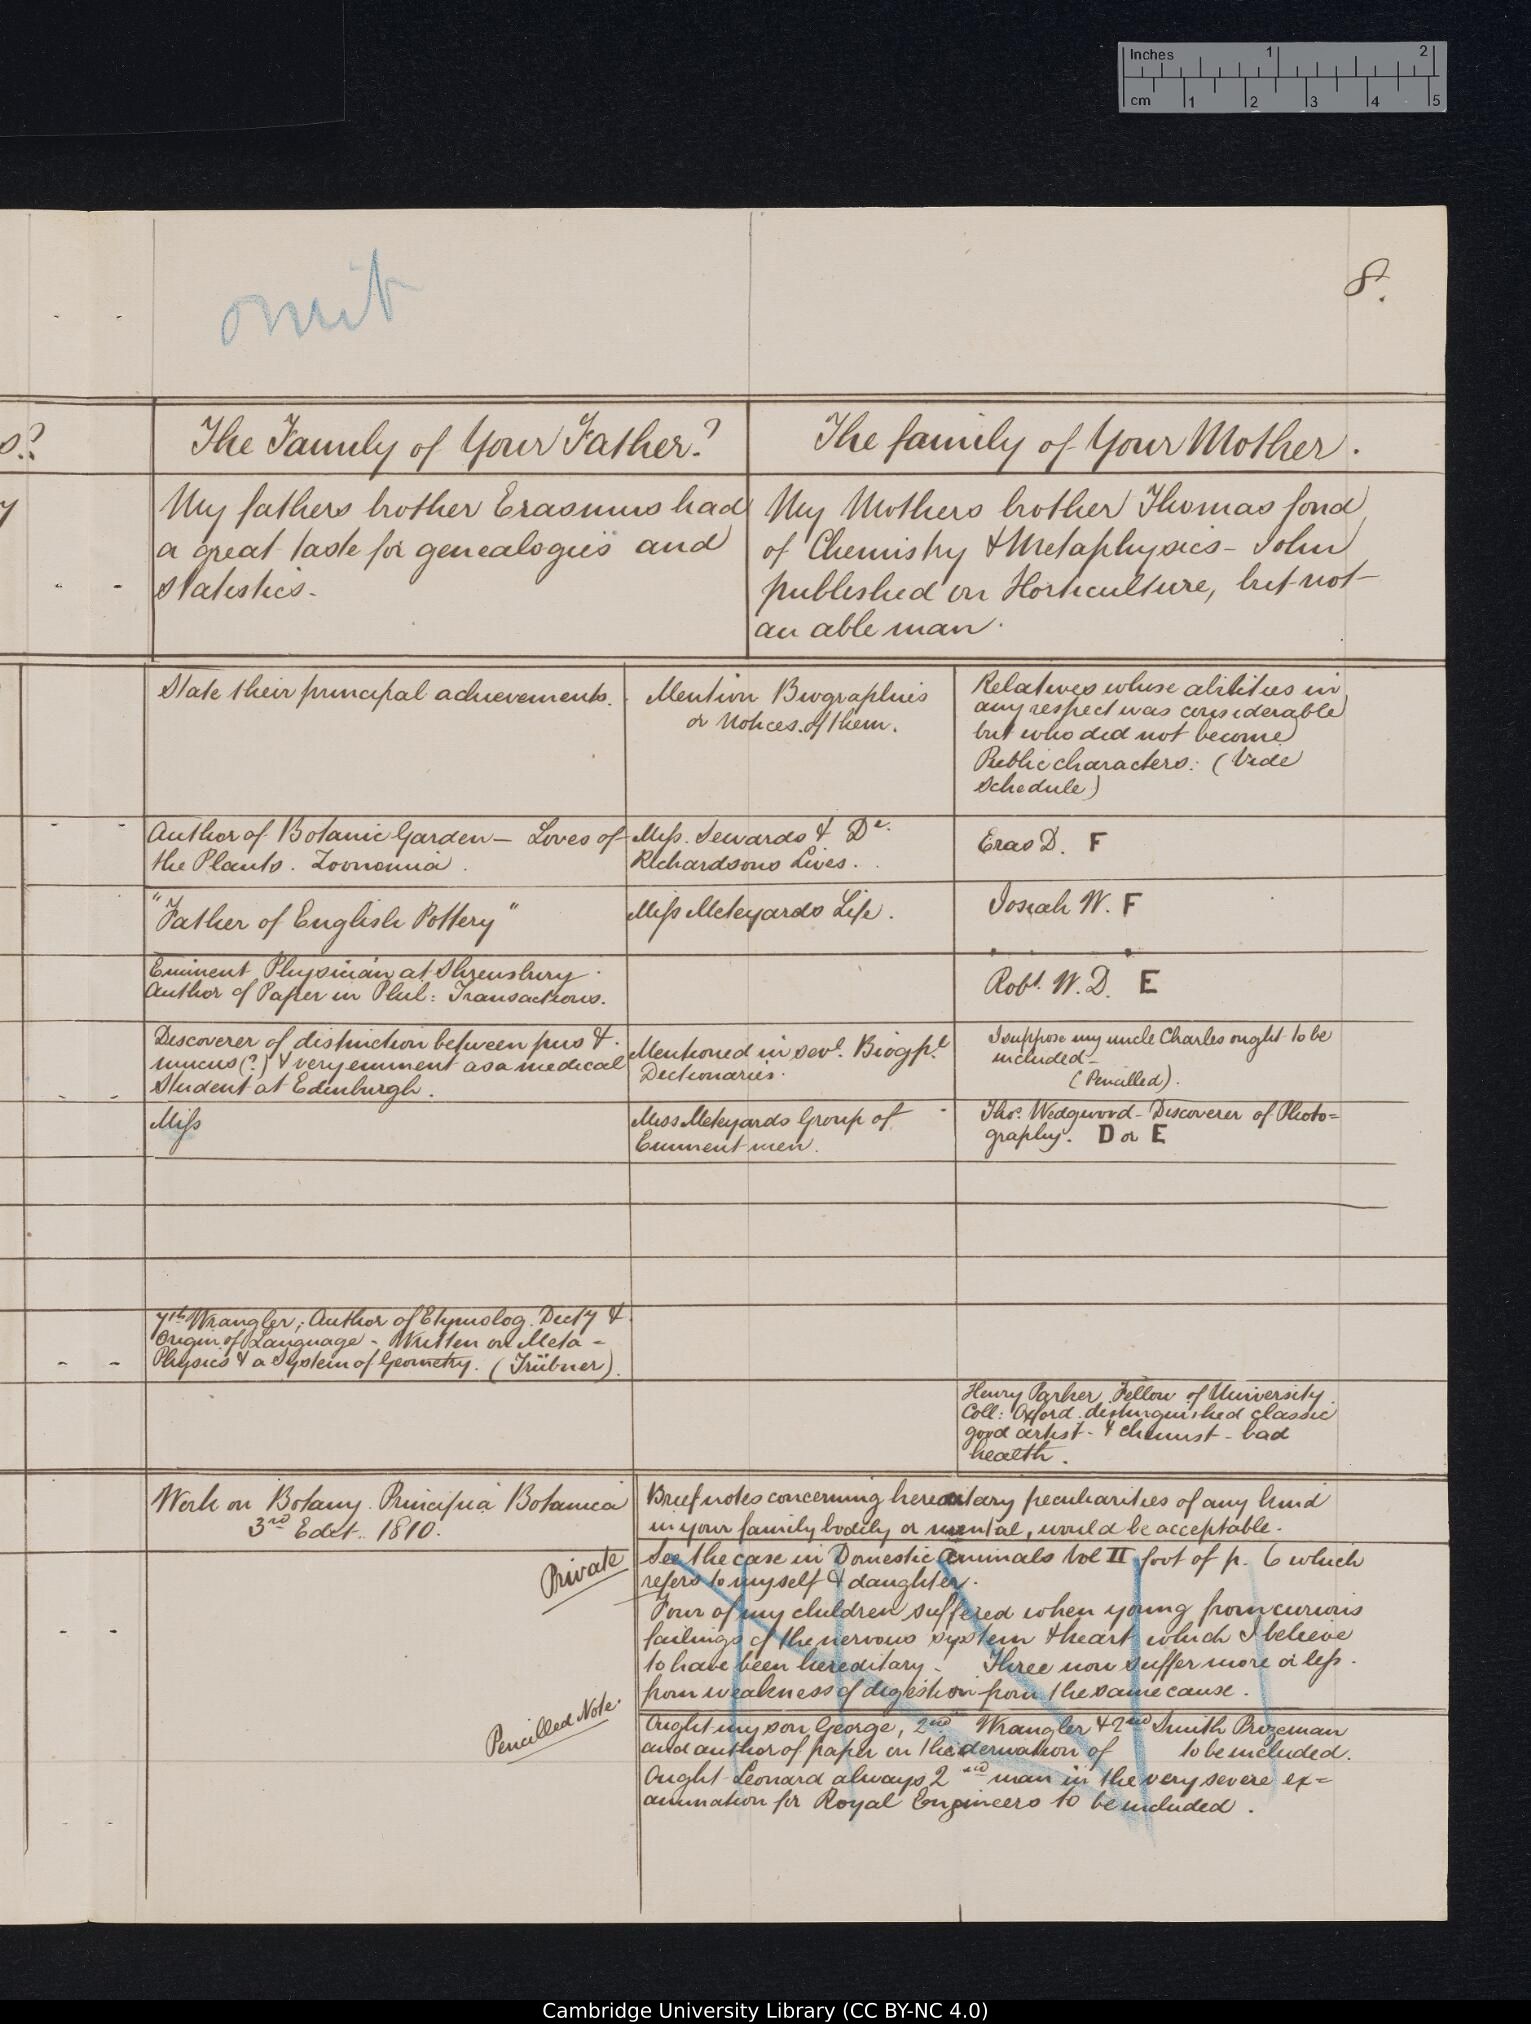 Inches 1 2
cm 1 2 3 4 5
omit
8.
s?
The Family of Your Father?
The family of Your Mother.
y
My fathers brother Erasmus had
a great taste for genealogies and
statistics.
My Mothers brother Thomas fond
of Chemistry & Metaphysics - John
published on Horticulture, but not
an able man.
State their principal achievements.
Mention Biographies
or Notices of them.
Relatives whose abilities in
any respect was considerable
but who did not become
Public characters: (Vide
Schedule)
Author of Botanic Garden - Loves of
the Plants. Zoonomia.
Miss. Sewards & Dr.
Richardsons Lives.
Eras D. F
"Father of English Pottery"
Miss Meteyards Life.
Josiah W. F
Eminent Physician at Shrewsbury.
Author of Paper in Phil: Transactions.
Robt. W. D. E
Discoverer of distinction between pus &
mucus (?) & very eminent as a medical
Student at Edinburgh.
Mentioned in sevl. Biogpl
Dictionaries.
I suppose my uncle Charles ought to be
included -
(Pencilled).
Miss
Miss Meteyards Group of
Eminent men.
Thos. Wedgwood - Discoverer of Photo=
graphy. D or E
7th Wrangler; Author of Etymolog. Dicty &
Origin of Language - Written on Meta-
Physics & a System of Geometry. (Trübner).
Henry Parker, Fellow of University
Coll: Oxford. distinguished classic
good artist - & chemist - bad
health.
Work on Botany. Principia Botanica
3rd Edit. 1810.
Brief notes concerning hereditary peculiarities of any kind
in your family bodily or mental, would be acceptable.
Private
See the case in Domestic Animals Vol II foot of p. 6 which
refers to myself & daughter.
Four of my children suffered when young from curious
failings of the nervous system & heart which I believe
to have been hereditary - Three now suffer more or less
from weakness of digestion from the same cause.
Pencilled Note.
Ought my son George, 2nd Wrangler & 2nd Smith Prizeman
and author of paper on the derivation of to be included.
Ought Leonard always 2nd man in the very severe ex=
amination for Royal Engineers to be included.
Cambridge University Library (CC BY-NC 4.0)